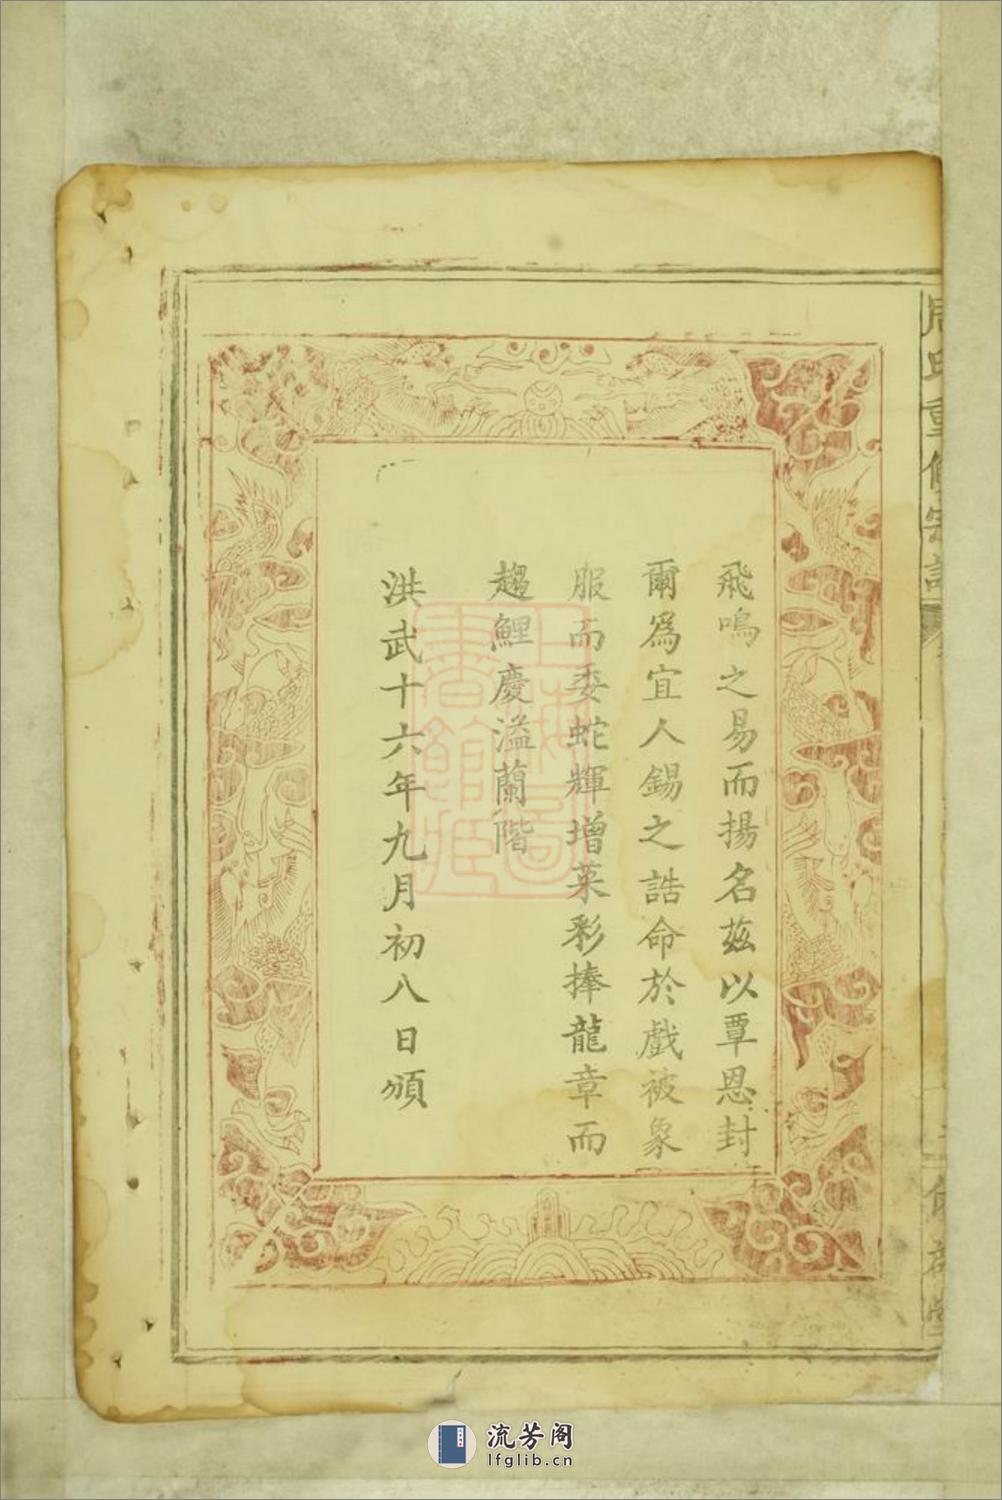 飛鳴之易而揚名茲以覃恩封
爾爲宜人錫之誥命於戲被象
服而委蛇輝增菜彩捧龍章而
趨鯉慶溢蘭階
洪武十六年九月初八日頒
上海圖書館藏
流芳阁
lfglib.cn